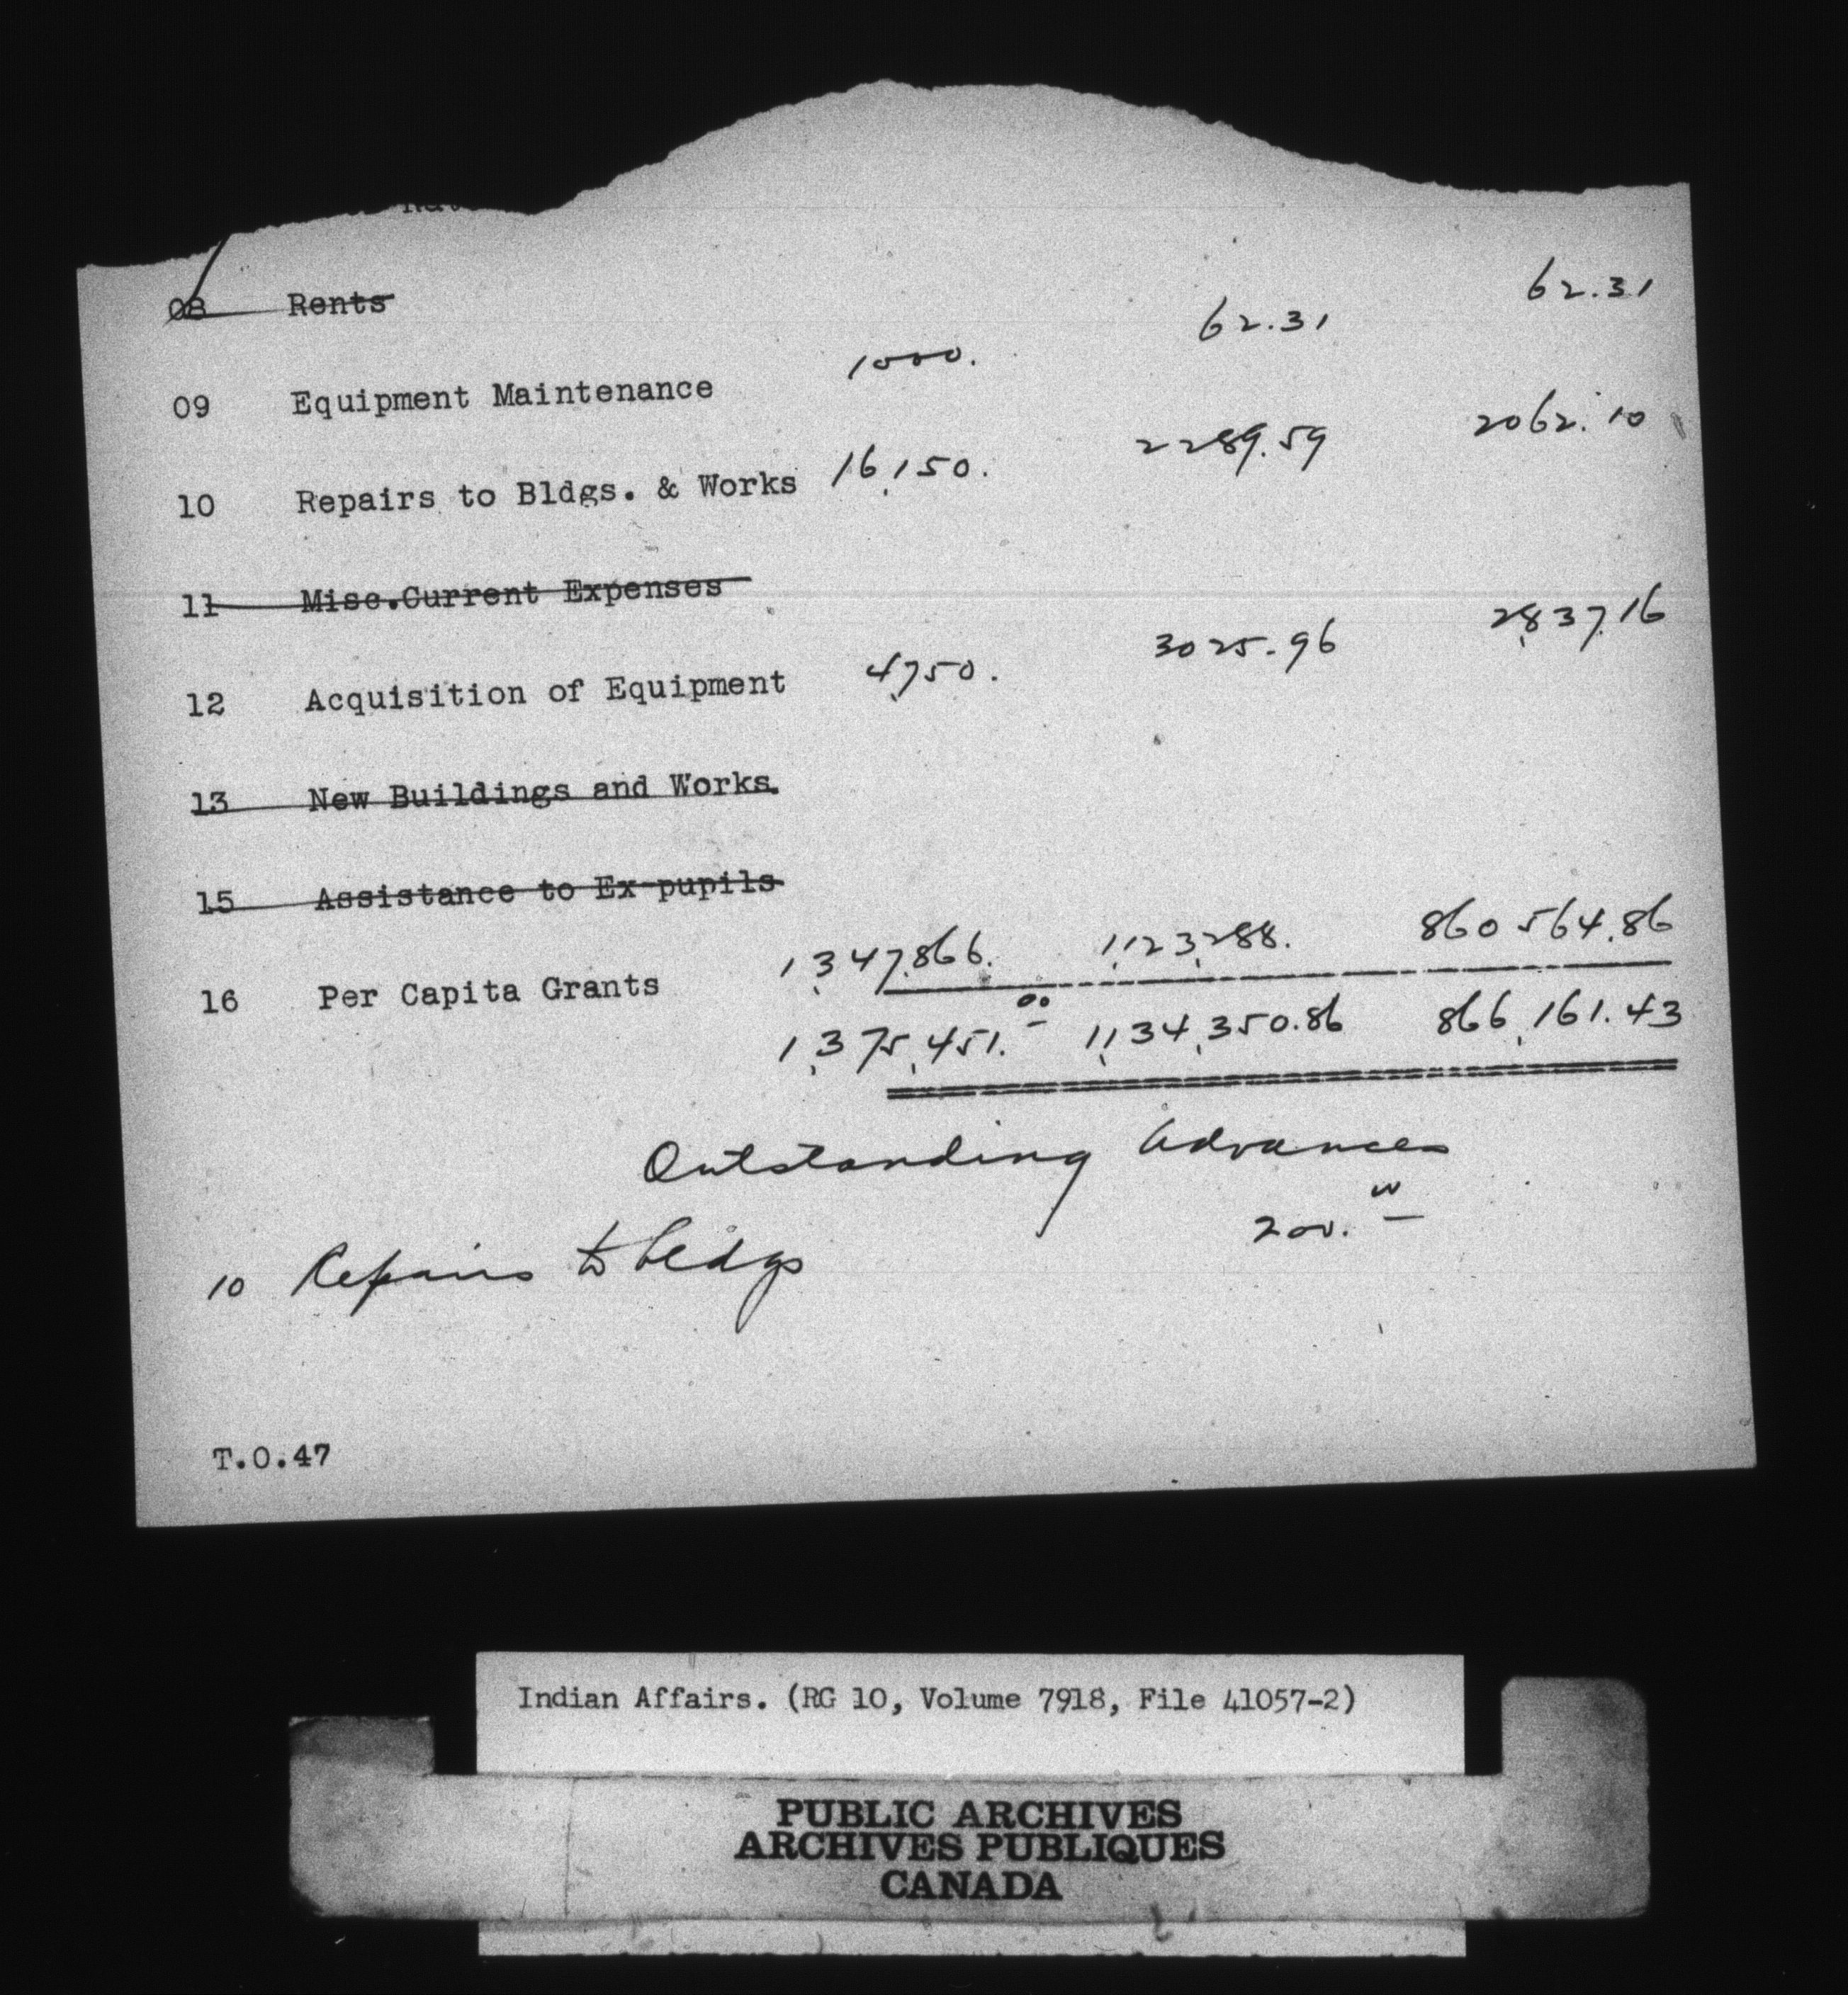 08 Rents
09 Equipment Maintenance 1000. 62.31 62.31
10 Repairs to Bldgs. & Works 16,150. 2289.59 2062.10
11 Misc.Current Expenses
12 Acquisition of Equipment 4,750. 3025.96 2,837.16
13 New Buildings and Works.
15 Assistance to Ex-pupils
16 Per Capita Grants 1,347,866. 1,123,288. 860 564.86
1,375,451.00 1,134,350.86 866,161.43
Outstanding Advances
10 Repairs to bldgs 200.00
T.O.47
Indian Affairs. (RG 10, Volume 7918, File 41057-2)
PUBLIC ARCHIVES
ARCHIVES PUBLIQUES
CANADA